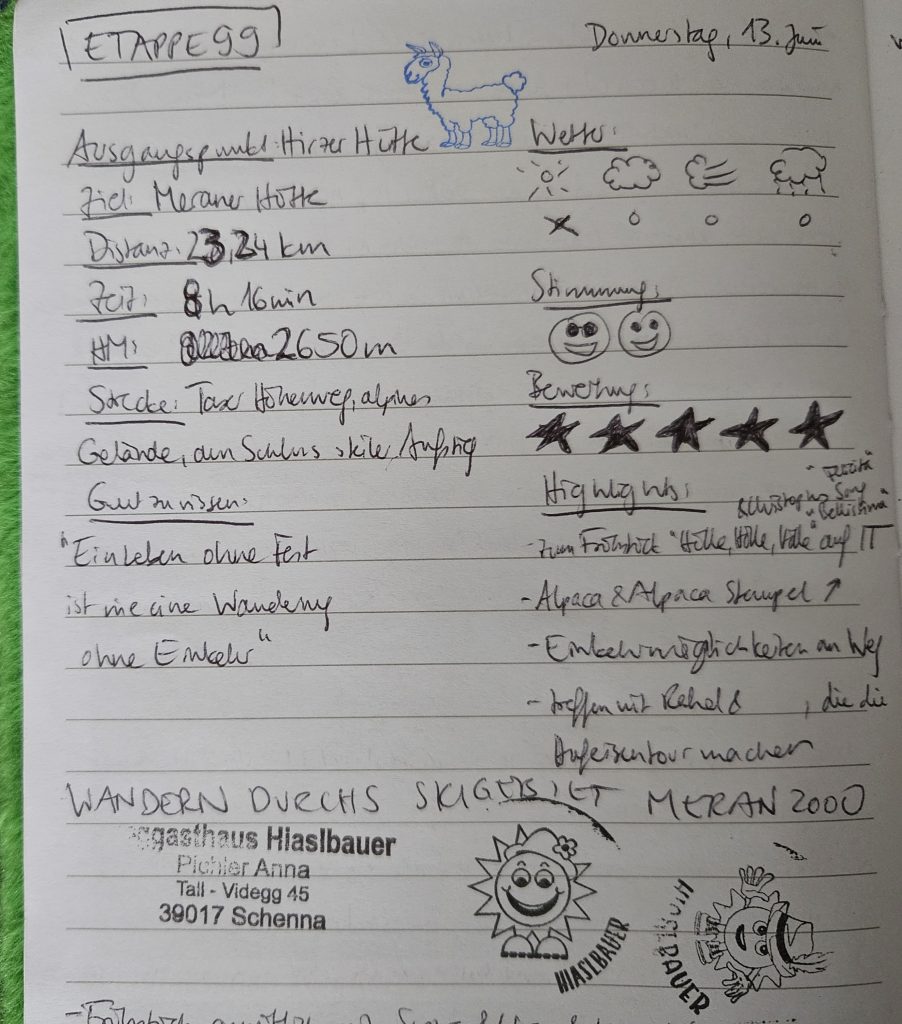 ETAPPE 99
Donnerstag, 13. Juni
Ausgangspunkt: Hirzer Hütte
Ziel: Meraner Hütte
Distanz: 23,24 km
Zeit: 8h 16min
HM: 2650m
Strecke: Taser Höhenweg, alpines
Gelände, zum Schluss steiler Aufstieg
Gut zu wissen:
"Ein Leben ohne Fest
ist wie eine Wanderung
ohne Einkehr"
Wetter:
Stimmung:
Bewertung:
Highlights:
& Christophs Song
"Bellissima"
- zum Frühstück "Hölle, Hölle, Hölle" auf IT
- Alpaca & Alpaca Stempel ↗
- Einkehrmöglichkeiten am Weg
- treffen mit &, die die
machen
WANDERN DURCHS SKIGEBIET MERAN 2000
gasthaus Hiaslbauer
Pichler Anna
Tall - Videgg 45
39017 Schenna
HIASLBAUER
HIASLBAUER